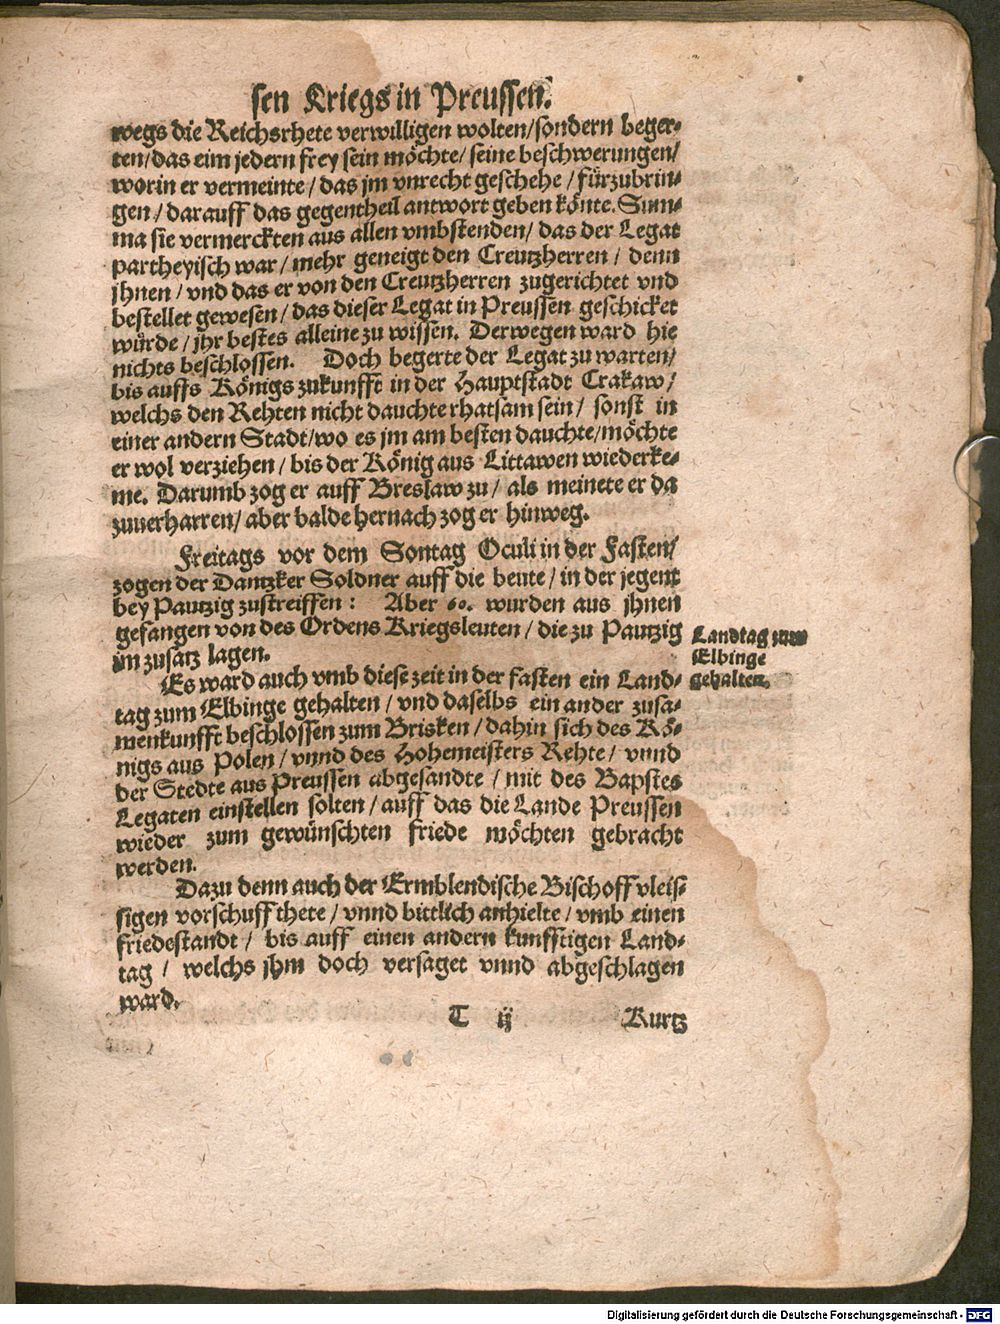 sen Kriegs in Preussen.
wegs die Reichsrhete verwilligen wolten/sondern beger⸗
ten/das eim jedern frey sein möchte/ seine beschwerungen/
worin er vermeinte / das jm vnrecht geschehe / fürzubrin⸗
gen / darauff das gegentheil antwort geben könte. Sum⸗
ma sie vermerckten aus allen vmbstenden/ das der Legat
partheyisch war / mehr geneigt den Creutzherren / denn
jhnen / vnd das er von den Creutzherren zugerichtet vnd
bestellet gewesen / das dieser Legat in Preussen geschicket
würde / jhr bestes alleine zu wissen. Derwegen ward hie
nichts beschlossen. Doch begerte der Legat zu warten/
bis auffs Königs zukunfft in der Hauptstadt Crakaw/
welchs den Rehten nicht dauchte rhatsam sein/ sonst in
einer andern Stadt/wo es jm am besten dauchte/möchte
er wol verziehen / bis der König aus Littawen wiederke⸗
me. Darumb zog er auff Breslaw zu / als meinete er da
zuuerharren/ aber balde hernach zog er hinweg.
Freitags vor dem Sontag Oculi in der Fasten/
zogen der Dantzker Soldner auff die beute / in der jegent
bey Pautzig zustreiffen: Aber 60. wurden aus jhnen
gefangen von des Ordens Kriegsleuten / die zu Pautzig
im zusatz lagen.
Landtag zum
Elbinge
gehalten.
Es ward auch vmb diese zeit in der fasten ein Land⸗
tag zum Elbinge gehalten / vnd daselbs ein ander zusa⸗
menkunfft beschlossen zum Brisken / dahin sich des Kö⸗
nigs aus Polen / vnnd des Hohemeisters Rehte / vnnd
der Stedte aus Preussen abgesandte / mit des Bapstes
Legaten einstellen solten / auff das die Lande Preussen
wieder zum gewünschten friede möchten gebracht
werden.
Dazu denn auch der Ermblendische Bischoff vleis⸗
sigen vorschuff thete / vnnd bittlich anhielte / vmb einen
friedestandt / bis auff einen andern kunfftigen Land⸗
tag / welchs jhm doch versaget vnnd abgeschlagen
ward.
T ij Kurtz
Digitalisierung gefördert durch die Deutsche Forschungsgemeinschaft - DFG